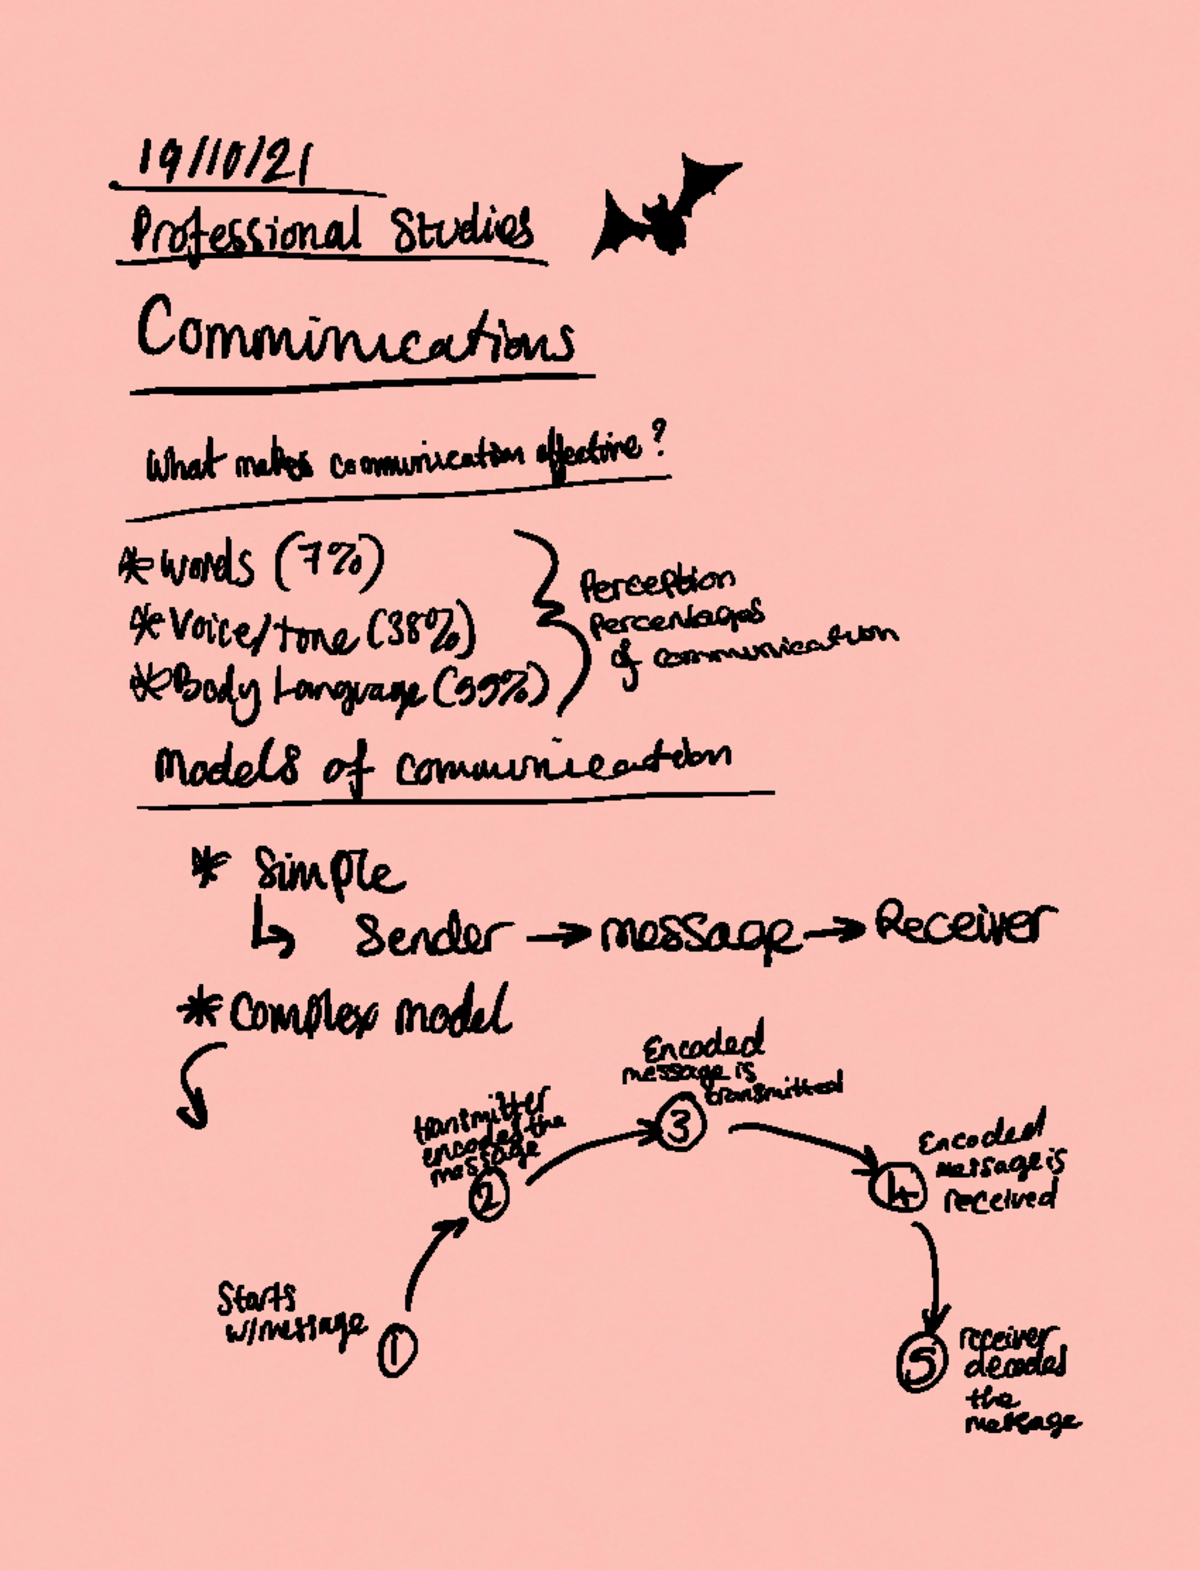 19/10/21
Professional Studies
Comminications
What makes communication effective?
* Words (7%)
* Voice/tone (38%)
* Body Language (55%)
Perception
Percentages
of communication
Models of communication
* Simple
↳ Sender → message → Receiver
* Complex model
Starts
w/message
1
transmitter
encodes the
message
2
Encoded
message is
transmitted
3
Encoded
message is
received
4
receiver
decodes
the
message
5